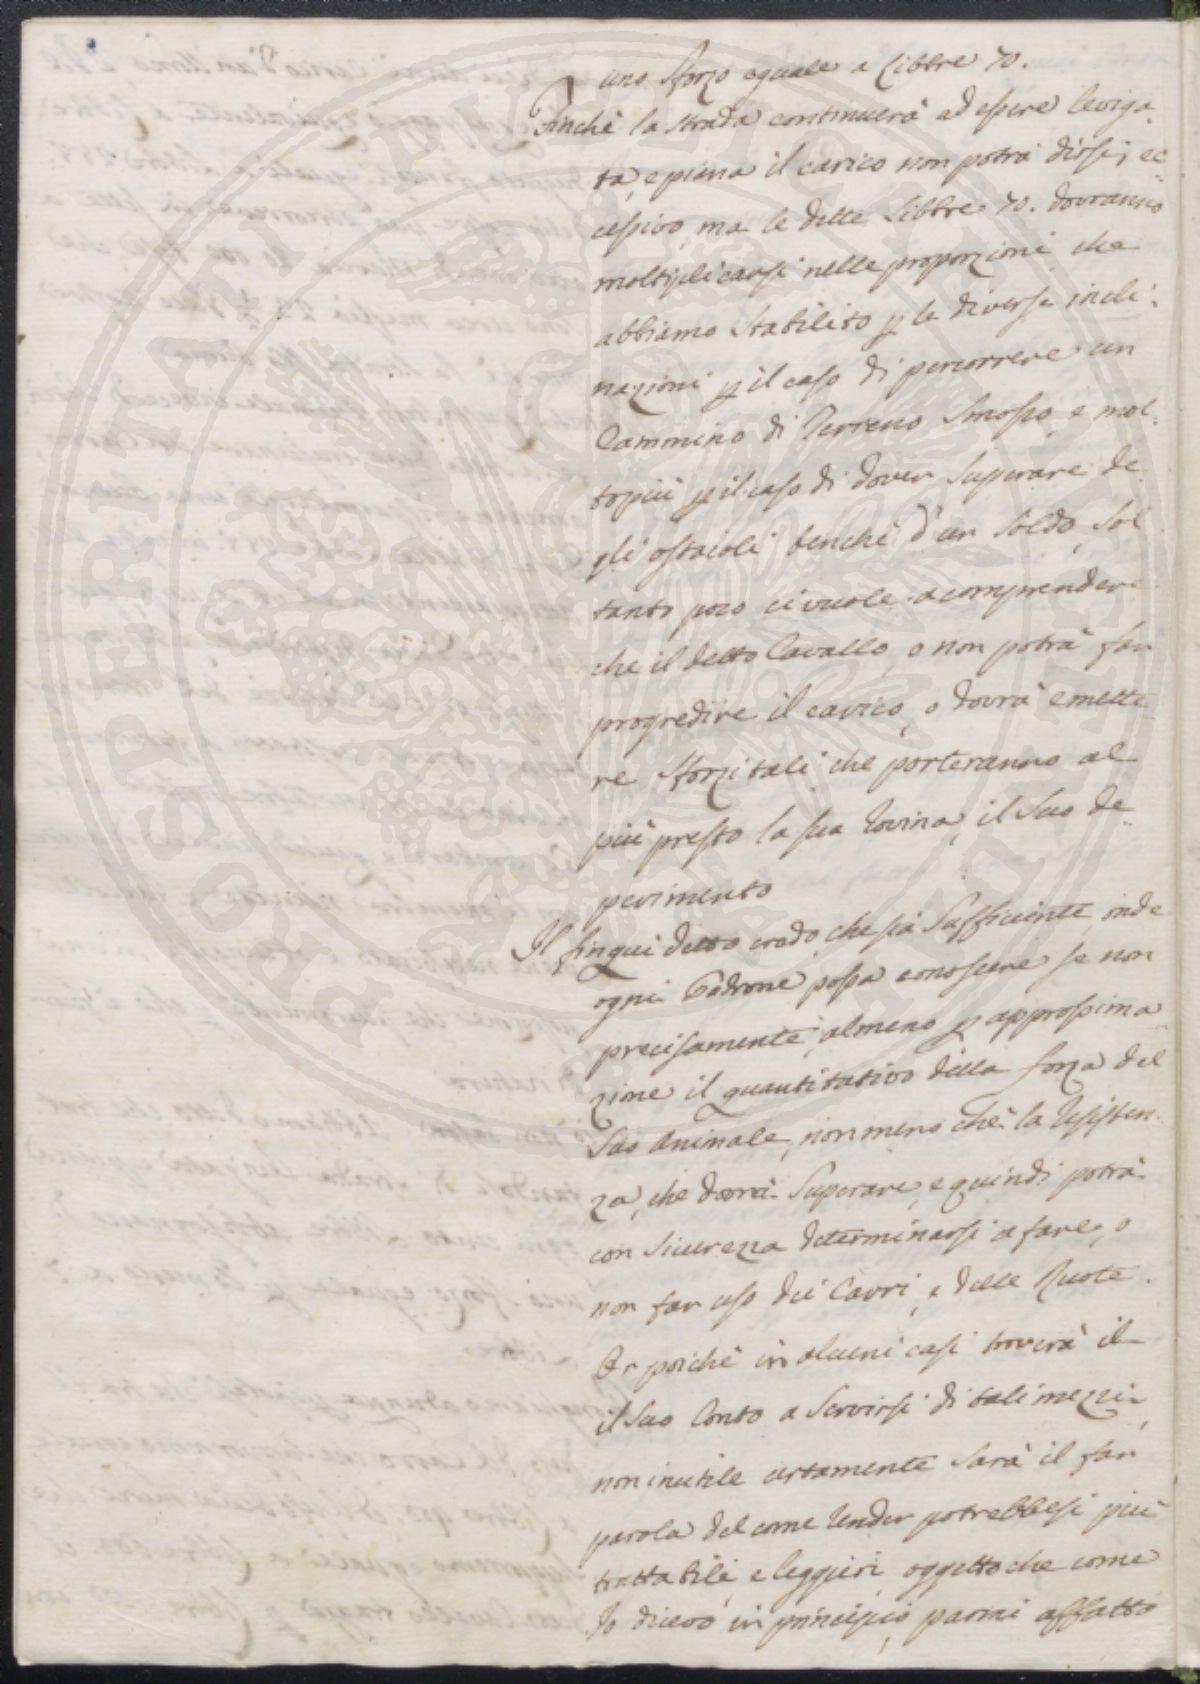 uno sforzo eguale a Libbre 70.
Finchè la strada continuerà ad essere leviga
ta, e piana il carico non potrà dirsi, ec
cessivo, ma le dette Libbre 70. dovranno
moltiplicarsi nelle proporzioni, che
abbiamo stabilito p le diverse incli:
nazioni p il caso di percorrere un
Cammino di Terreno smosso, e mol:
topiù p il caso di dover superare de
gli ostacoli benchè d'un soldo, Sol
tanto poco ci vuole a comprendere
che il detto Cavallo, o non potrà far
progredire il carico, o dovrà emette
re sforzi tali, che porteranno al
più presto la sua rovina, il suo de
perimento
Il finqui detto credo, che sia sufficiente, onde
ogni Padrone possa conoscere se non
precisamente, almeno p approssima
zione il quantitativo della forza del
suo Animale, nonmeno chè la resisten
za, che dovrà superare, e quindi potrà
con sicurezza determinarsi a fare, o
non far uso dei Carri, e delle Ruote.
Or poichè in alcuni casi troverà il
il suo Conto a servirsi di tali mezzi,
non inutile certamente sarà il far
parola del come render potrebbesi più
trattabili, e leggieri, oggetto che come
Io dicevo in principio, parmi affatto
PROSPERITATI PUBLICAE